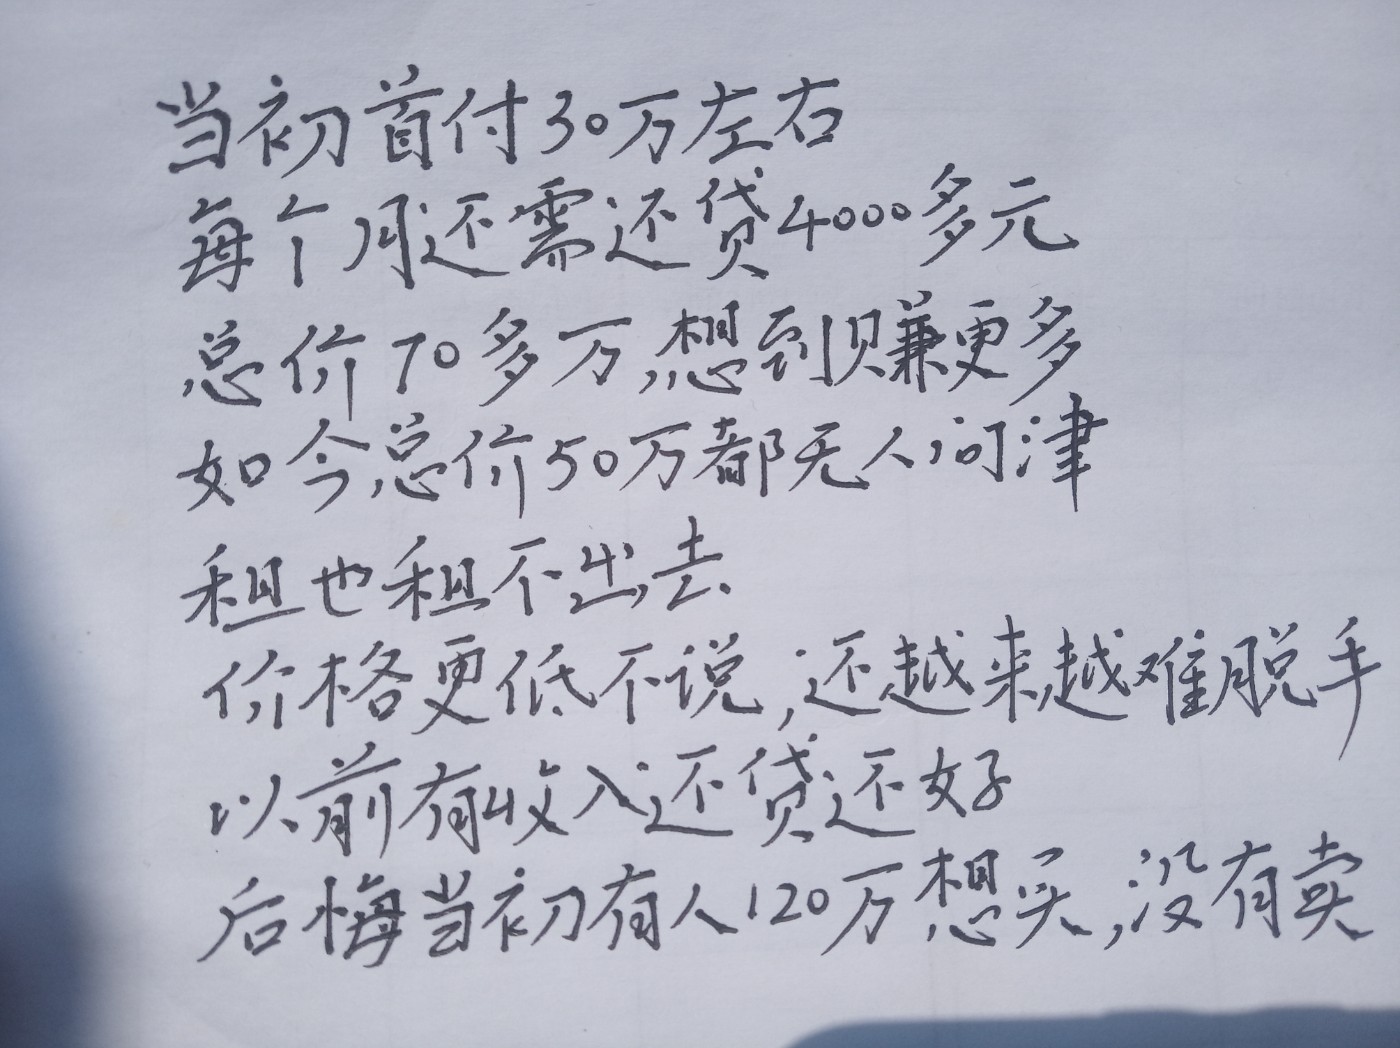 当初首付30万左右
每个月还需还贷4000多元
总价70多万,想到赚更多
如今总价50万都无人问津
租也租不出去
价格更低不说,还越来越难脱手
以前有收入还贷还好
后悔当初有人120万想买,没有卖